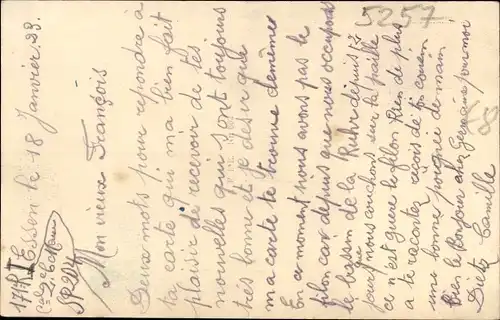 5257
171e R I
SP 204
Essen le 18 Janvier 23.
Mon vieux François
Deux mots pour repondre à
ta carte qui m'a bien fait
plaisir de recevoir de tes
nouvelles qui sont toujours
très bonne et je desir que
ma carte te trouve de mêmes
En ce moment nous avons pas le
filon car depuis que nous occupons
le bassin de la Ruhr depuis
jours nous couchons sur la paille
ce n'est guere le filon Rien de plus
a te raconter reçois de ton cousin
une bonne poignée de main
bien le Bonjour chez Germaine pour moi
Dietz Camille